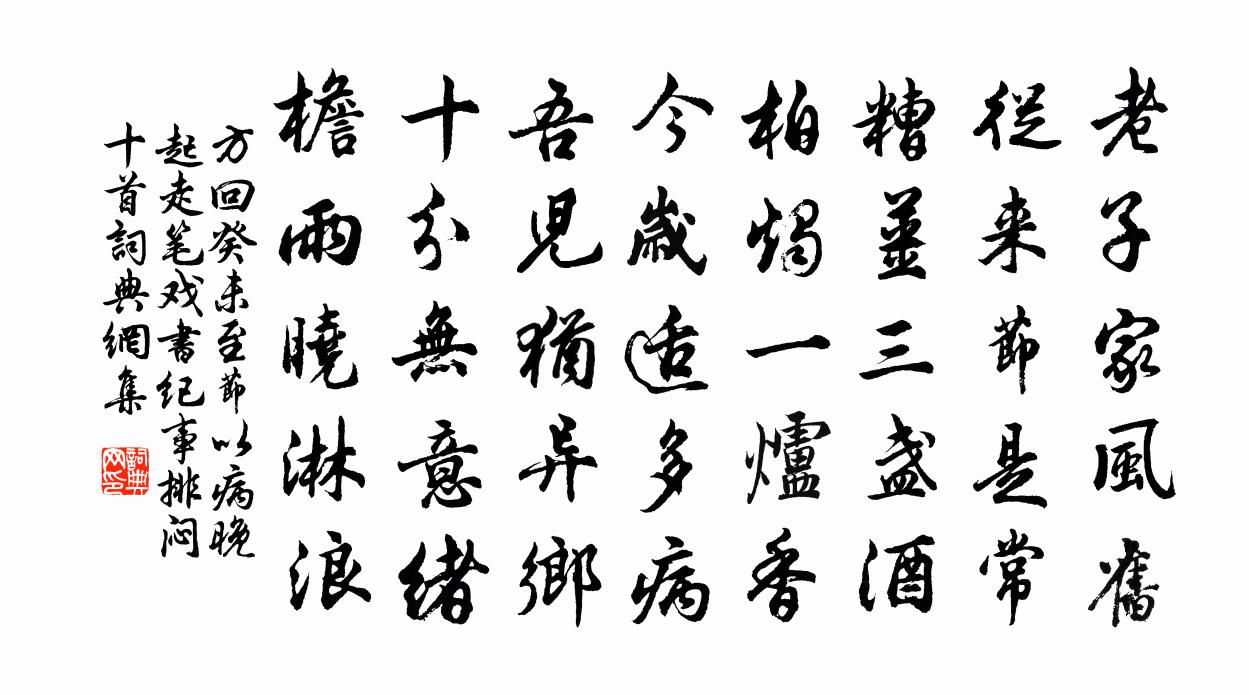 老子家風舊
從来節是常
糟薑三盏酒
柏燭一爐香
今歲适多病
吾児猶异鄉
十分無意緒
檐雨曉淋浪
方回癸未至節以病晚
起走笔戏書纪事排闷
十首詞典網集
詞典网印